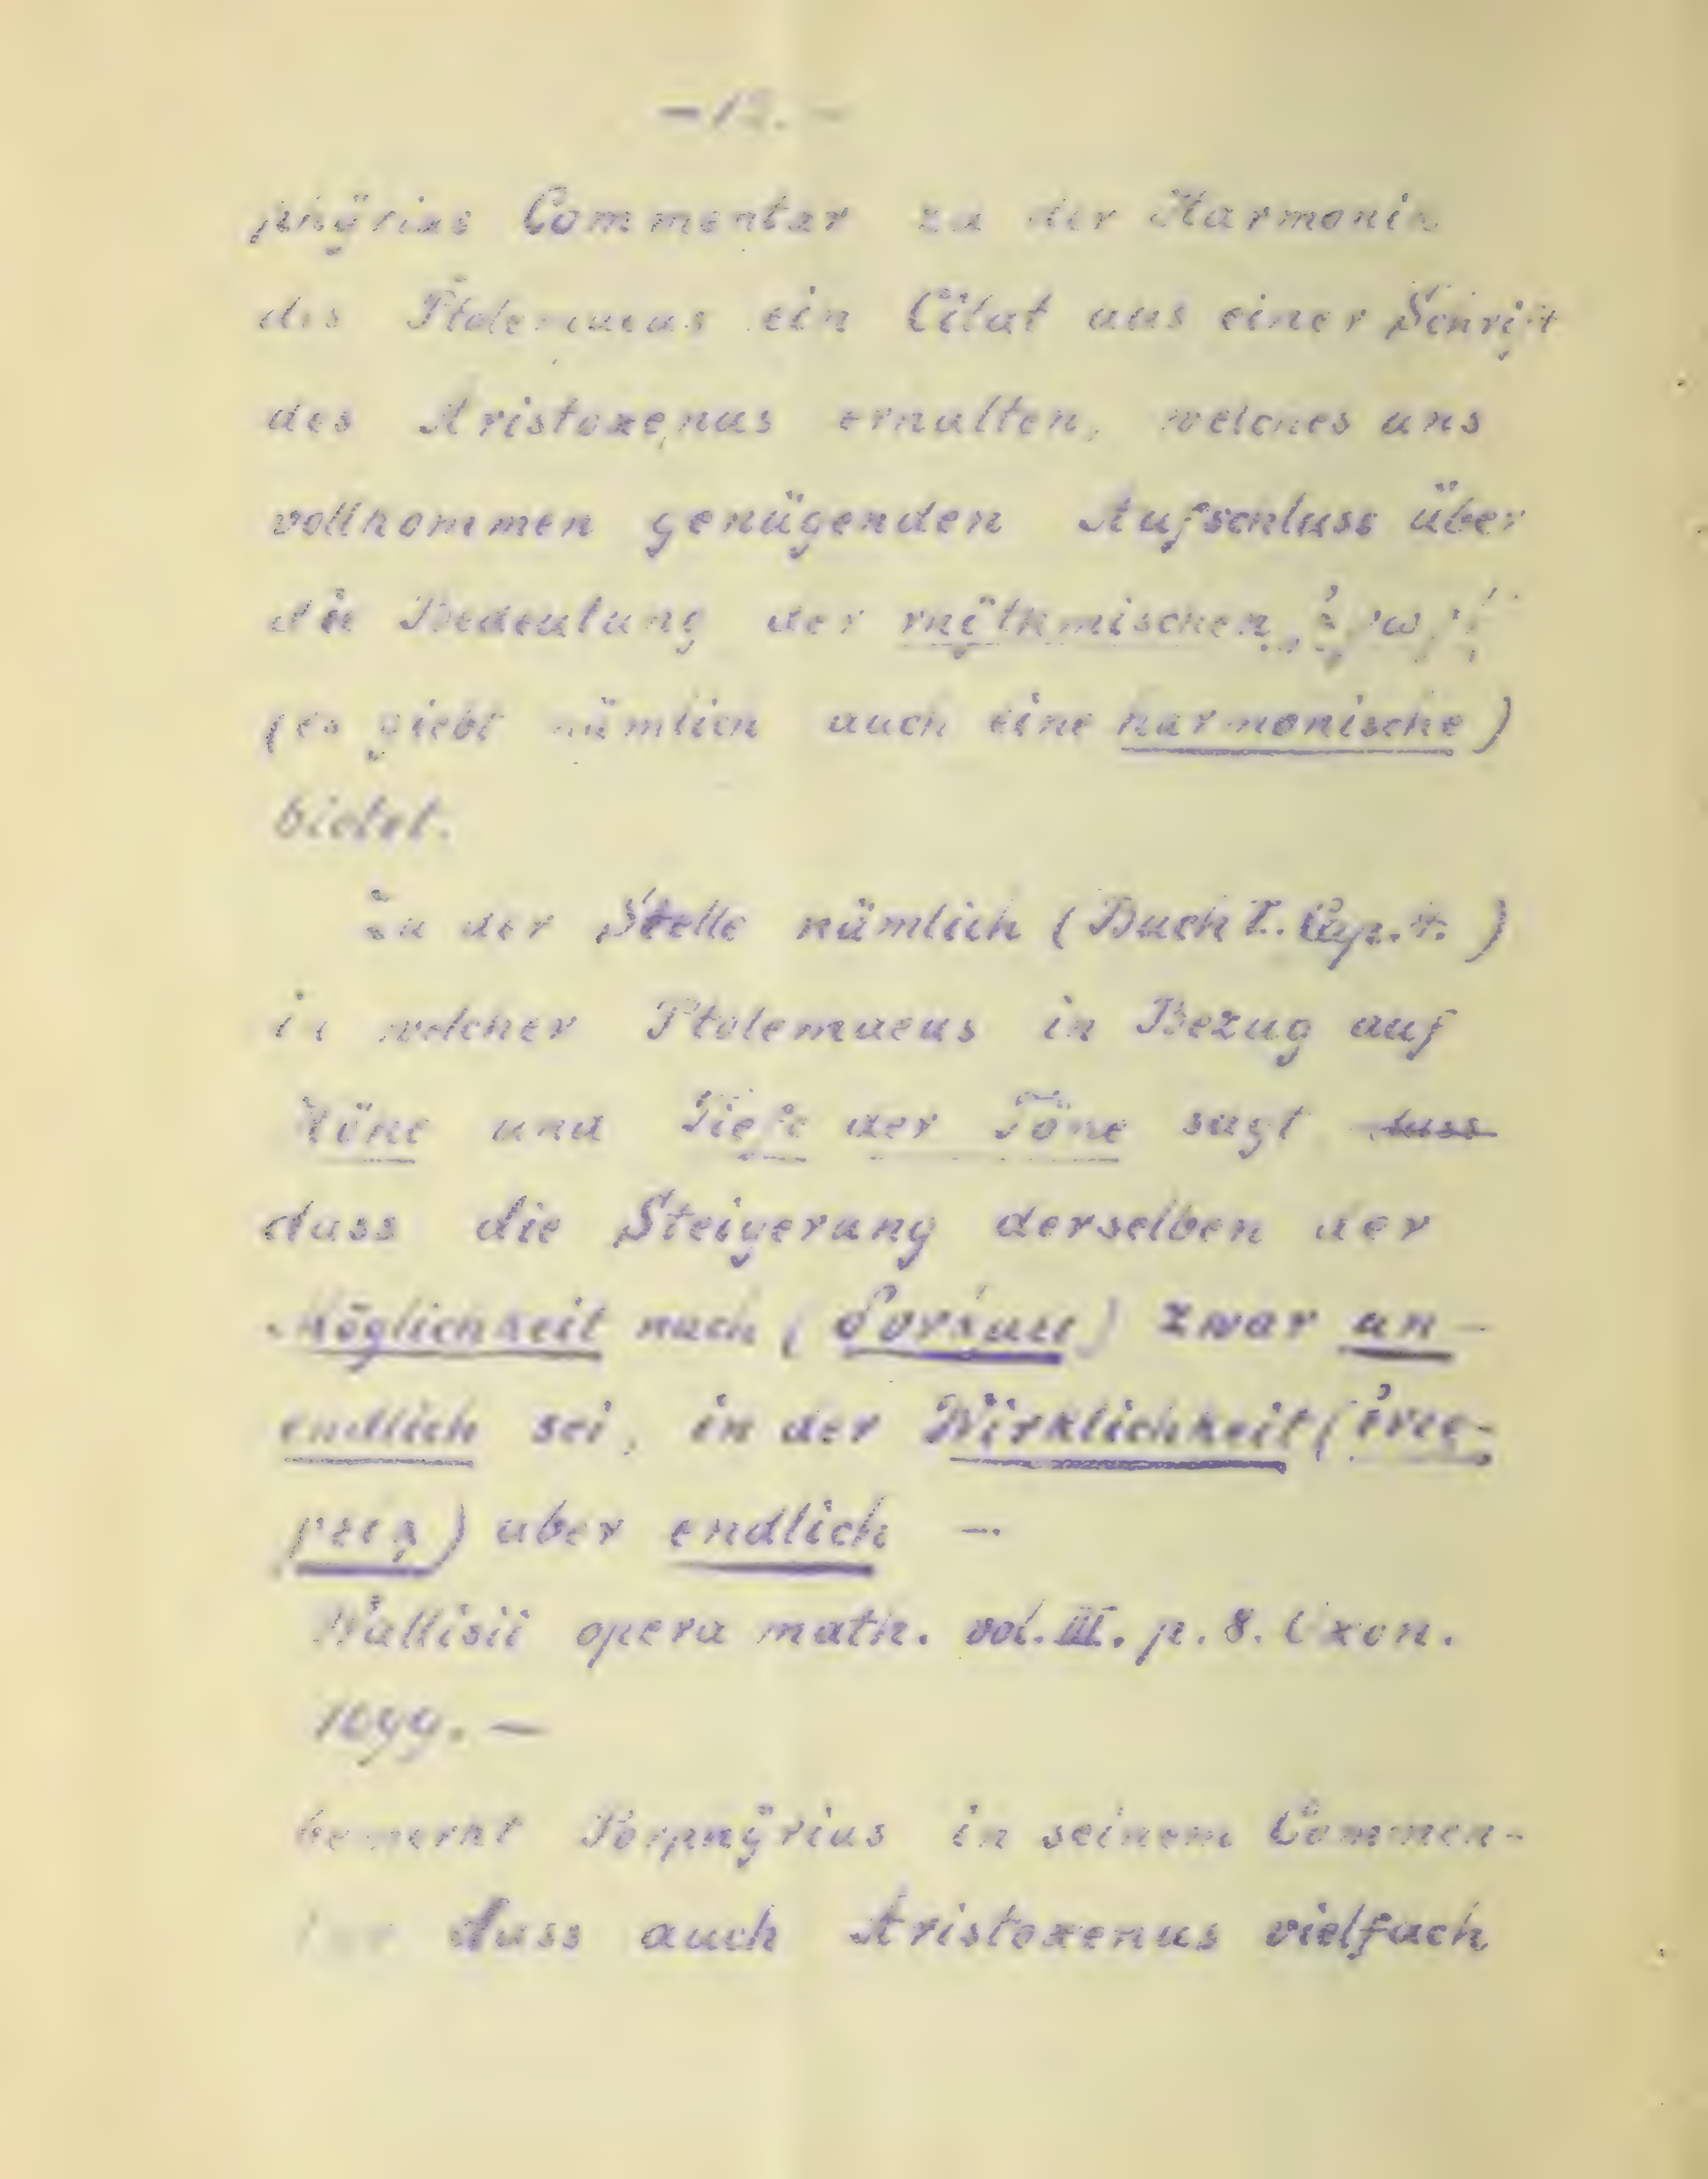 – 12. –
phÿrius Commentar zu der Harmonik
des Ptolemaeus ein Citat aus einer Schrift
des Aristoxenus erhalten, welches uns
vollkommen genügenden Aufschluss über
die Bedeutung der rhÿthmischen
(es giebt nämlich auch eine harmonische)
bietet.
Zu der Stelle nämlich (Buch I. Cap. 4.)
in welcher Ptolemaeus in Bezug auf
Höhe und Tiefe der Töne sagt dass
dass die Steigerung derselben der
Möglichkeit nach (δυνάμει) zwar un-
endlich sei, in der Wirklichkeit (ἐνερ-
γείᾳ) aber endlich –
Wallisii opera math. vol. III. p. 8. Oxon.
1699. –
bemerkt Porphÿrius in seinem Commen-
tar dass auch Aristoxenus vielfach